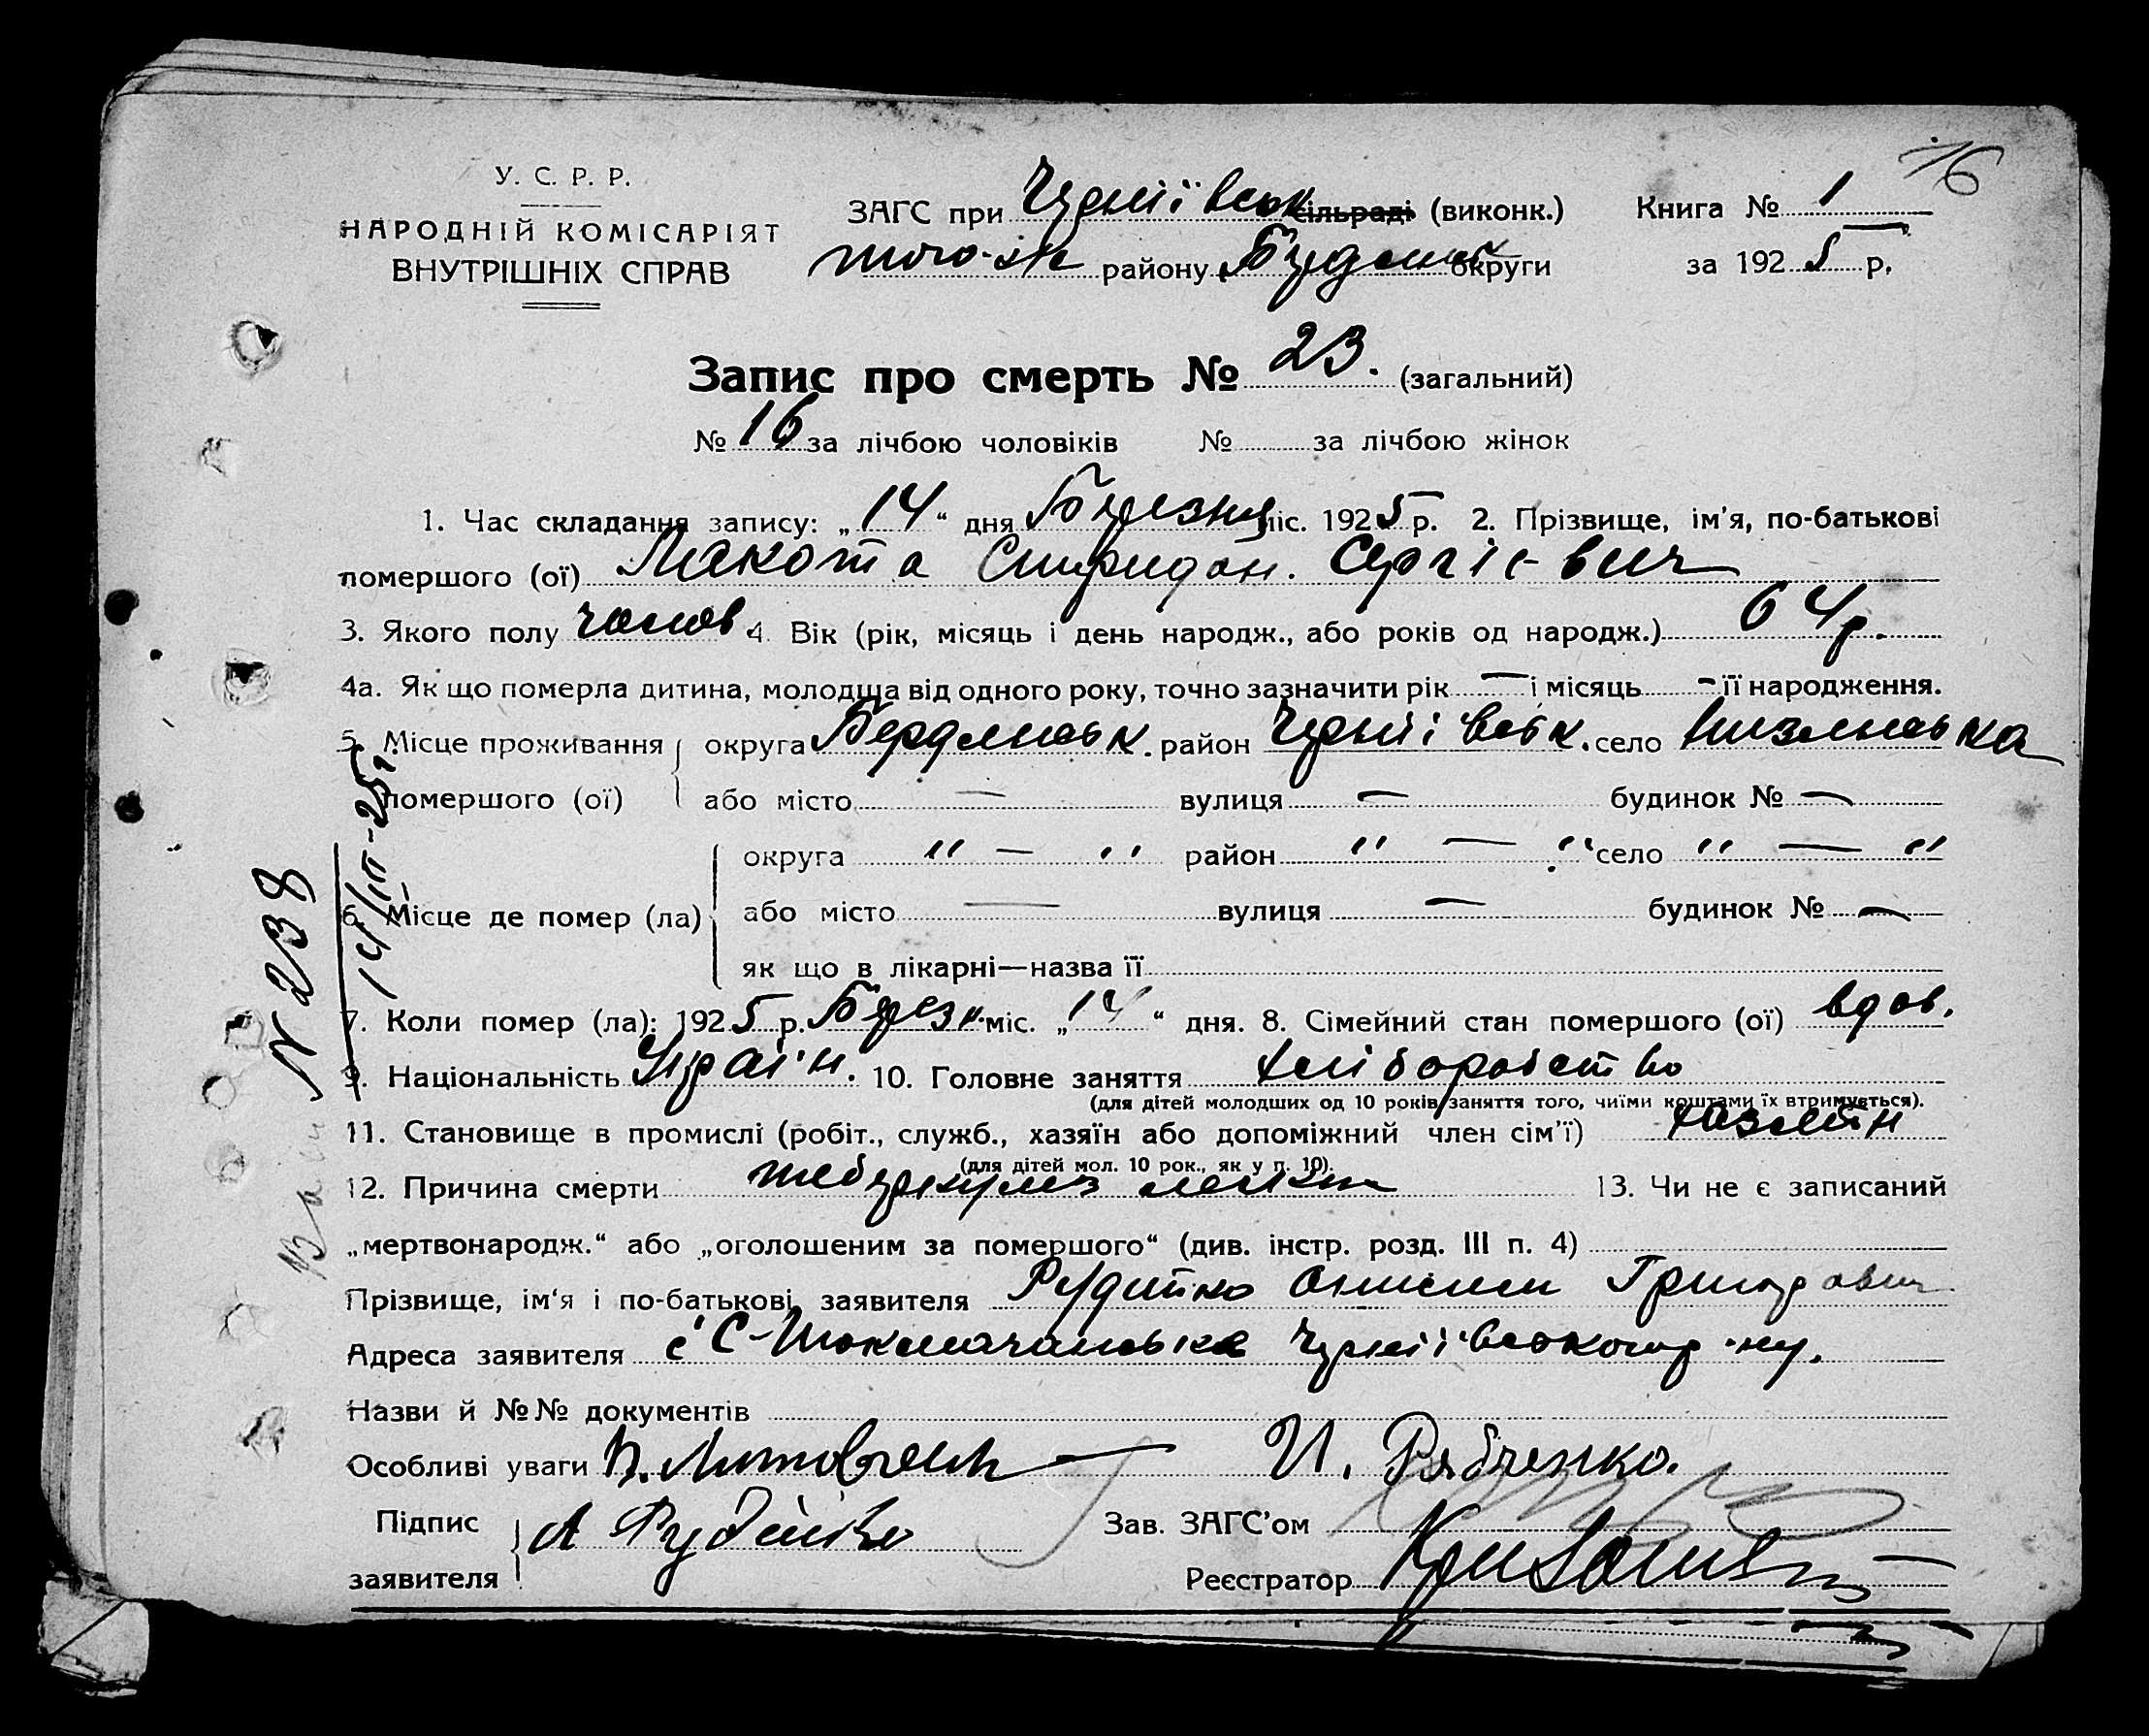 76
У. С. Р. Р.
НАРОДНІЙ КОМІСАРІЯТ
ВНУТРІШНІХ СПРАВ
ЗАГС при Чернiївськ сільраді (виконк.)
того-ж району Бердян округи
Книга № 1
за 1925 р.
Запис про смерть № 23. (загальний)
№ 16 за лічбою чоловіків № за лічбою жінок
1. Час складання запису: „14“ дня Березня міс. 1925 р. 2. Прізвище, ім'я, по-батькові
помершого (ої) Макота Спиридон. Сергієвич
3. Якого полу чолов 4. Вік (рік, місяць і день народж., або років од народж.) 64 р.
4а. Як що померла дитина, молодща від одного року, точно зазначити рік — і місяць - її народження.
5. Місце проживання округа Бердянськ. район Чернiївськ. село Низянська
помершого (ої) або місто — вулиця — будинок № —
округа " — " район " — " село " — "
6. Місце де помер (ла) або місто — вулиця — будинок № —
як що в лікарні—назва її
7. Коли помер (ла): 1925 р. Березн. міс. „14“ дня. 8. Сімейний стан помершого (ої) вдов.
9. Національність Україн. 10. Головне заняття хліборобство
(для дітей молодших од 10 років заняття того, чиїми коштами їх втримується).
11. Становище в промислі (робіт., служб., хазяїн або допоміжний член сім'ї) хазяїн
(для дітей мол. 10 рок., як у п. 10).
12. Причина смерти теберкулез легких 13. Чи не є записаний
„мертвонародж.“ або „оголошеним за помершого“ (див. інстр. розд. III п. 4)
Прізвище, ім'я і по-батькові заявителя Рудійко Онисим Григорович
Адреса заявителя с С-Токмачанська Чернiївського р-ну.
Назви й №№ документів
Особливі уваги И. Рябченко.
Підпис
заявителя А Рудійко
Зав. ЗАГС'ом
Реєстратор
N 238
14/III-25 г.